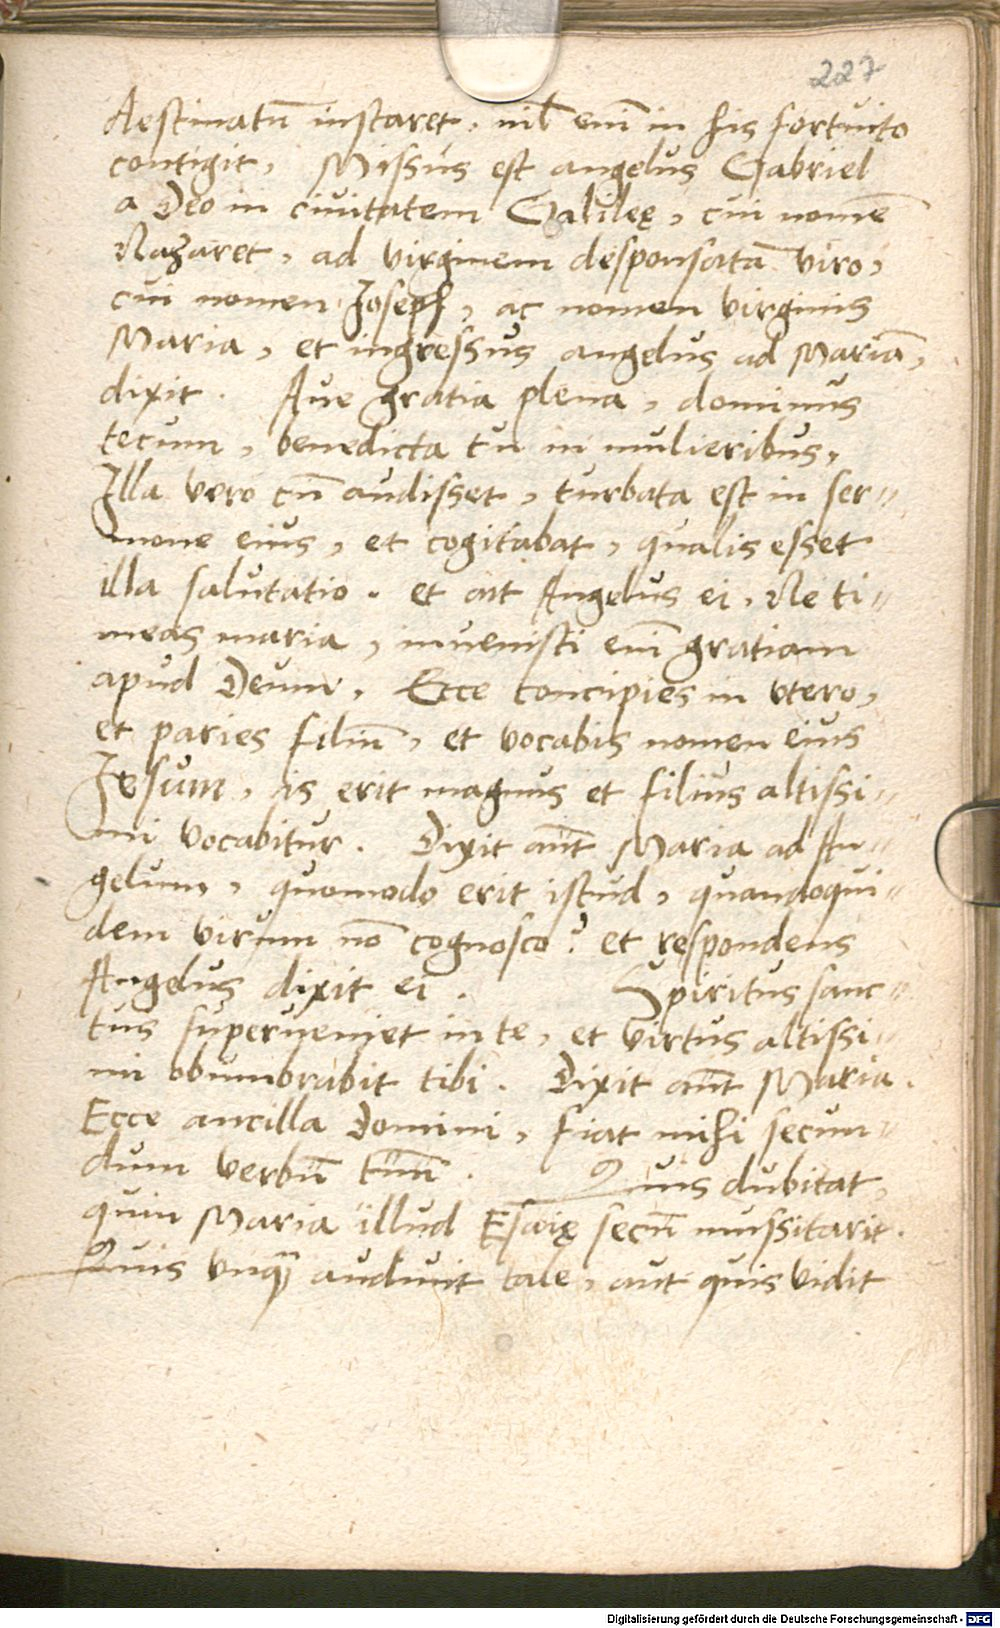 227
destinatū instaret, nil enī in his fortuito
contigit, Missus est angelus Gabriel
a Deo in civitatem Galileę, cui nomē
Nazaret, ad virginem desponsatā viro,
cui nomen Joseph, ac nomen virginis
Maria, et ingressus angelus ad Mariā,
dixit. Aue gratia plena, dominus
tecum, benedicta tu in mulieribus,
Illa vero cū audisset, turbata est in ser-
mone eius, et cogitabat, qualis esset
illa salutatio. et ait Angelus ei, Ne ti-
meas maria, invenisti enī gratiam
apud Deum, Ecce concipies in vtero,
et paries filiū, et vocabis nomen eius
Jesum, is erit magnus et filius altissi-
mi vocabitur. Dixit aūt Maria ad An-
gelum, quomodo erit istud, quandoqui-
dem virum nō cognosco? et respondens
Angelus dixit ei. Spiritus sanc-
tus superueniet in te, et virtus altissi-
mi obumbrabit tibi. Dixit aūt Maria.
Ecce ancilla Domini, fiat mihi secun-
dum verbū tuū. Quis dubitat,
quin Maria illud Esaię secū mussitarit.
Quis vnquā audiuit tale, aut quis vidit
Digitalisierung gefördert durch die Deutsche Forschungsgemeinschaft - DFG